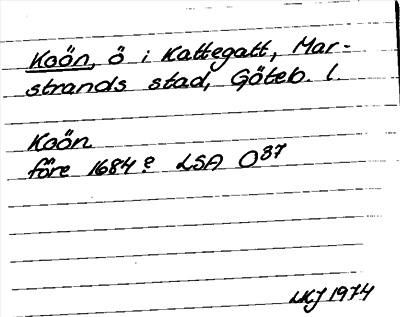 Koön, ö i Kattegatt, Mar-
strands stad, Göteb. l.
Koön
före 1684? LSA O37
LKJ 1974